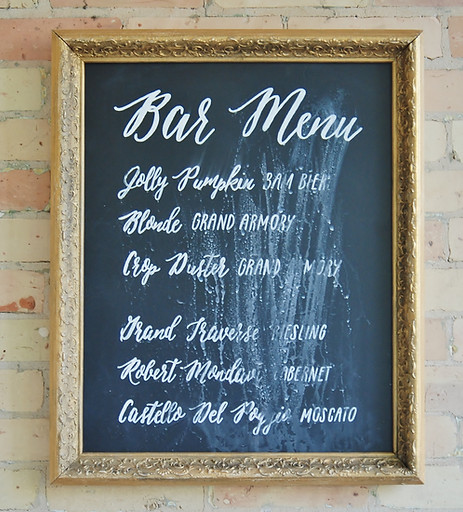 Bar Menu
Jolly Pumpkin BAM BIER
Blonde GRAND ARMORY
Crop Duster GRAND ARMORY
Grand Traverse RIESLING
Robert Mondavi CABERNET
Castello Del Poggio MOSCATO